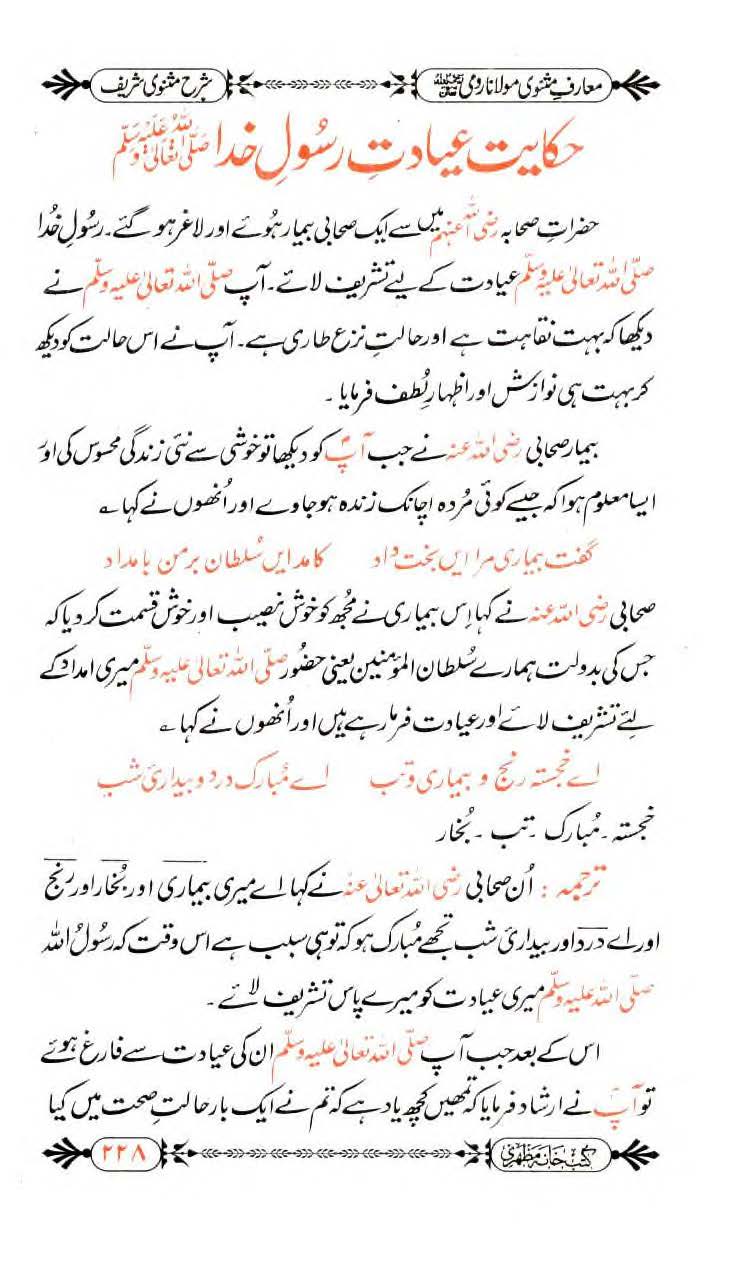 معارفِ مثنوی مولانا رومی رحمۃ اللہ علیہ
شرح مثنوی شریف
حکایت عیادتِ رسُولِ خدا صَلَّی اللہُ تَعَالٰی عَلَیْہِ وَسَلَّم
حضراتِ صحابہ رضی اللہ عنہم میں سے ایک صحابی بیمار ہُوئے اور لاغر ہو گئے۔ رسُولِ خُدا
صلّی اللہ تعالیٰ علیہ وسلّم عیادت کے لیے تشریف لائے۔ آپ صلّی اللہ تعالیٰ علیہ وسلّم نے
دیکھا کہ بہت نقاہت ہے اور حالتِ نزع طاری ہے۔ آپ نے اس حالت کو دیکھ
کر بہت ہی نوازش اور اظہارِ لُطف فرمایا۔
بیمار صحابی رضی اللہ عنہ نے جب آپؐ کو دیکھا تو خوشی سے نئی زندگی محسوس کی اور
ایسا معلوم ہوا کہ جیسے کوئی مُردہ اچانک زندہ ہو جاوے اور اُنھوں نے کہا ؎
گفت بیماری مرا ایں بخت داد کامد ایں سُلطان بر من بامداد
صحابی رضی اللہ عنہ نے کہا اِس بیماری نے مُجھ کو خوش نصیب اور خوش قسمت کر دیا کہ
جس کی بدولت ہمارے سُلطان المؤمنین یعنی حضُور صلّی اللہ تعالیٰ علیہ وسلّم میری امداد کے
لیٔے تشریف لائے اور عیادت فرما رہے ہیں اور اُنھوں نے کہا ؎
اے خجستہ رنج و بیماری و تب اے مُبارک درد و بیداریٔ شب
خجستہ۔ مُبارک۔ تب۔ بُخار
ترجمہ : اُن صحابی رضی اللہ تعالیٰ عنہ نے کہا اے میری بیماری اور بُخار اور رنج
اور اے درد اور بیداریٔ شب تجھے مُبارک ہو کہ تو ہی سبب ہے اس وقت کہ رسُولُ اللہ
صلّی اللہ علیہ وسلّم میری عیادت کو میرے پاس تشریف لائے۔
اس کے بعد جب آپ صلّی اللہ تعالیٰ علیہ وسلّم ان کی عیادت سے فارغ ہوئے
تو آپؐ نے ارشاد فرمایا کہ تمھیں کچھ یاد ہے کہ تم نے ایک بار حالتِ صحت میں کیا
کتب خانہ مظہری
۲۲۸